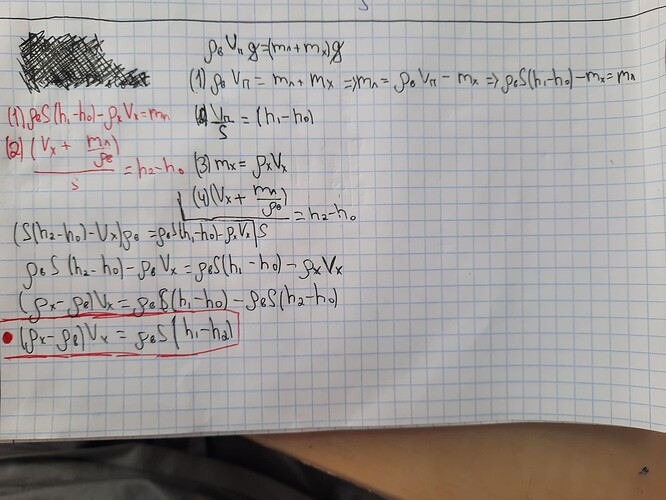 ρв Vп g = (mл + mx) g
(1) ρв Vп = mл + mx => mл = ρв Vп - mx => ρв S(h₁-h₀) - mx = mл
(1) ρв S(h₁-h₀) - ρx Vx = mл
(2) Vп/S = (h₁-h₀)
(2) (Vx + mл/ρв)/S = h₂-h₀
(3) mx = ρx Vx
(4) (Vx + mл/ρв)/S = h₂-h₀
(S(h₂-h₀) - Vx) ρв = ρв S(h₁-h₀) - ρx Vx
ρв S (h₂-h₀) - ρв Vx = ρв S(h₁-h₀) - ρx Vx
(ρx - ρв) Vx = ρв S(h₁-h₀) - ρв S(h₂-h₀)
• (ρx - ρв) Vx = ρв S (h₁-h₂)